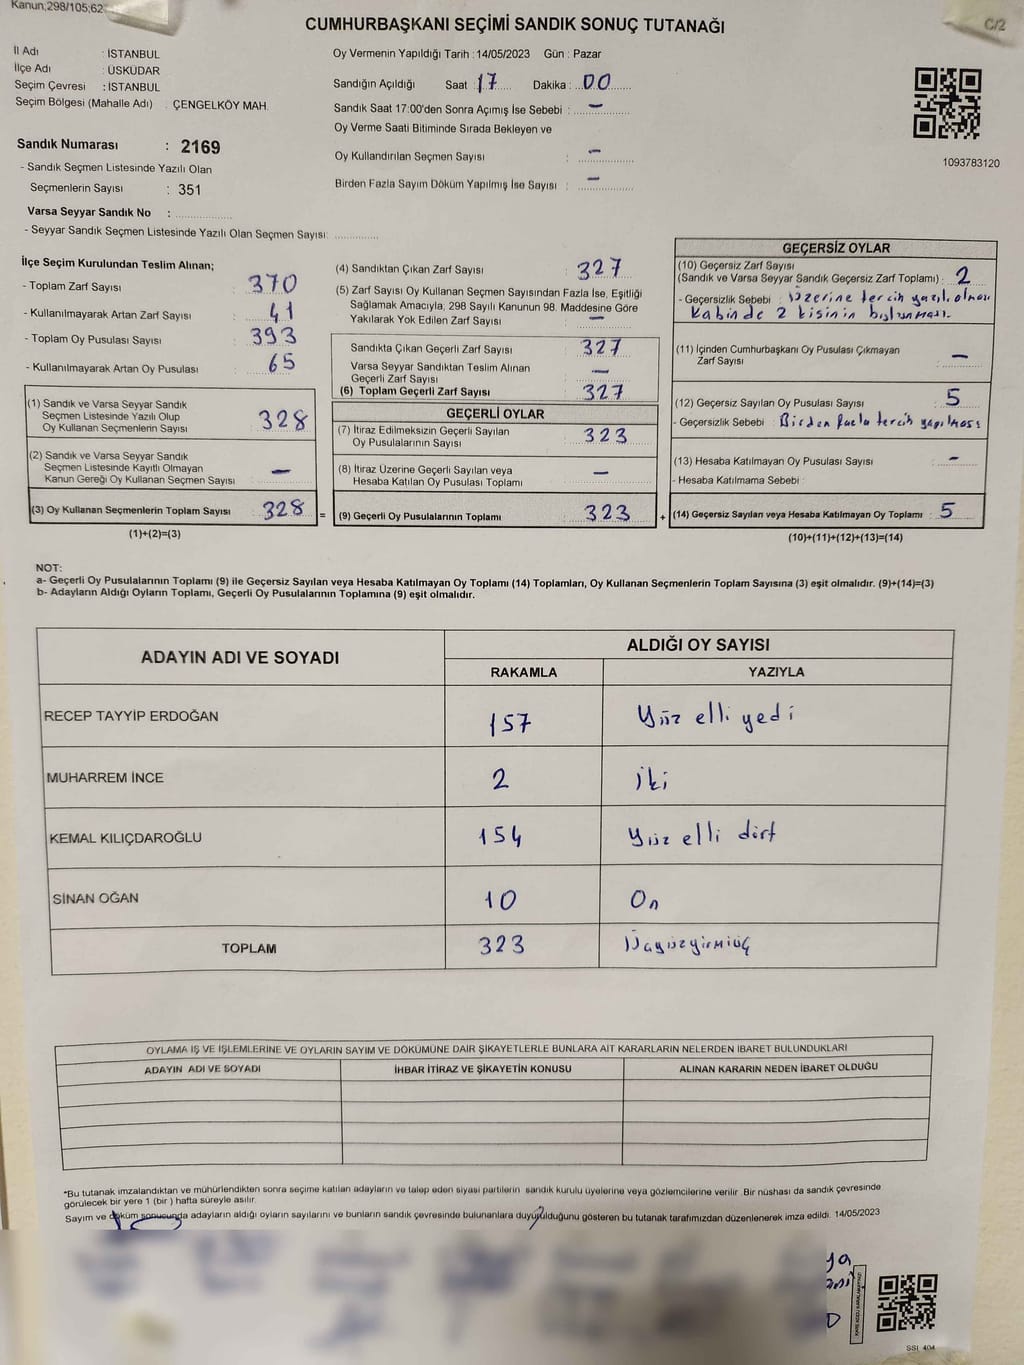 Kanun;298/105;62
C/2
CUMHURBAŞKANI SEÇİMİ SANDIK SONUÇ TUTANAĞI
İl Adı : İSTANBUL
İlçe Adı : ÜSKÜDAR
Seçim Çevresi : İSTANBUL
Seçim Bölgesi (Mahalle Adı) : ÇENGELKÖY MAH.
Oy Vermenin Yapıldığı Tarih : 14/05/2023 Gün : Pazar
Sandığın Açıldığı Saat : 17 Dakika : 00
Sandık Saat 17:00'den Sonra Açımış İse Sebebi : —
Oy Verme Saati Bitiminde Sırada Bekleyen ve
Oy Kullandırılan Seçmen Sayısı : —
Birden Fazla Sayım Döküm Yapılmış İse Sayısı : —
1093783120
Sandık Numarası : 2169
- Sandık Seçmen Listesinde Yazılı Olan
Seçmenlerin Sayısı : 351
Varsa Seyyar Sandık No :
- Seyyar Sandık Seçmen Listesinde Yazılı Olan Seçmen Sayısı:
İlçe Seçim Kurulundan Teslim Alınan;
- Toplam Zarf Sayısı : 370
- Kullanılmayarak Artan Zarf Sayısı : 41
- Toplam Oy Pusulası Sayısı : 393
- Kullanılmayarak Artan Oy Pusulası : 65
(1) Sandık ve Varsa Seyyar Sandık
Seçmen Listesinde Yazılı Olup
Oy Kullanan Seçmenlerin Sayısı : 328
(2) Sandık ve Varsa Seyyar Sandık
Seçmen Listesinde Kayıtlı Olmayan
Kanun Gereği Oy Kullanan Seçmen Sayısı : —
(3) Oy Kullanan Seçmenlerin Toplam Sayısı : 328 =
(1)+(2)=(3)
(4) Sandıktan Çıkan Zarf Sayısı : 327
(5) Zarf Sayısı Oy Kullanan Seçmen Sayısından Fazla İse, Eşitliği
Sağlamak Amacıyla, 298 Sayılı Kanunun 98. Maddesine Göre
Yakılarak Yok Edilen Zarf Sayısı : —
Sandıkta Çıkan Geçerli Zarf Sayısı : 327
Varsa Seyyar Sandıktan Teslim Alınan
Geçerli Zarf Sayısı : —
(6) Toplam Geçerli Zarf Sayısı : 327
GEÇERLİ OYLAR
(7) İtiraz Edilmeksizin Geçerli Sayılan
Oy Pusulalarının Sayısı : 323
(8) İtiraz Üzerine Geçerli Sayılan veya
Hesaba Katılan Oy Pusulası Toplamı : —
(9) Geçerli Oy Pusulalarının Toplamı : 323 +
GEÇERSİZ OYLAR
(10) Geçersiz Zarf Sayısı
(Sandık ve Varsa Seyyar Sandık Geçersiz Zarf Toplamı) : 2
- Geçersizlik Sebebi : Üzerine tercih yazıl. olması
Kabinde 2 kişinin
(11) İçinden Cumhurbaşkanı Oy Pusulası Çıkmayan
Zarf Sayısı : —
(12) Geçersiz Sayılan Oy Pusulası Sayısı : 5
- Geçersizlik Sebebi : Birden fazla tercih yapılması
(13) Hesaba Katılmayan Oy Pusulası Sayısı : -
- Hesaba Katılmama Sebebi :
(14) Geçersiz Sayılan veya Hesaba Katılmayan Oy Toplamı : 5
(10)+(11)+(12)+(13)=(14)
NOT:
a- Geçerli Oy Pusulalarının Toplamı (9) ile Geçersiz Sayılan veya Hesaba Katılmayan Oy Toplamı (14) Toplamları, Oy Kullanan Seçmenlerin Toplam Sayısına (3) eşit olmalıdır. (9)+(14)=(3)
b- Adayların Aldığı Oyların Toplamı, Geçerli Oy Pusulalarının Toplamına (9) eşit olmalıdır.
ADAYIN ADI VE SOYADI
ALDIĞI OY SAYISI
RAKAMLA YAZIYLA
RECEP TAYYİP ERDOĞAN 157 Yüz elli yedi
MUHARREM İNCE 2 İki
KEMAL KILIÇDAROĞLU 154 Yüz elli dört
SİNAN OĞAN 10 On
TOPLAM 323 Üçyüzyirmiüç
OYLAMA İŞ VE İŞLEMLERİNE VE OYLARIN SAYIM VE DÖKÜMÜNE DAİR ŞİKAYETLERLE BUNLARA AİT KARARLARIN NELERDEN İBARET BULUNDUKLARI
ADAYIN ADI VE SOYADI İHBAR İTİRAZ VE ŞİKAYETİN KONUSU ALINAN KARARIN NEDEN İBARET OLDUĞU
*Bu tutanak imzalandıktan ve mühürlendikten sonra seçime katılan adayların ve talep eden siyasi partilerin sandık kurulu üyelerine veya gözlemcilerine verilir. Bir nüshası da sandık çevresinde
görülecek bir yere 1 (bir ) hafta süreyle asılır.
Sayım ve döküm sonucunda adayların aldığı oyların sayılarını ve bunların sandık çevresinde bulunanlara duyurulduğunu gösteren bu tutanak tarafımızdan düzenlenerek imza edildi. 14/05/2023
SSI 404